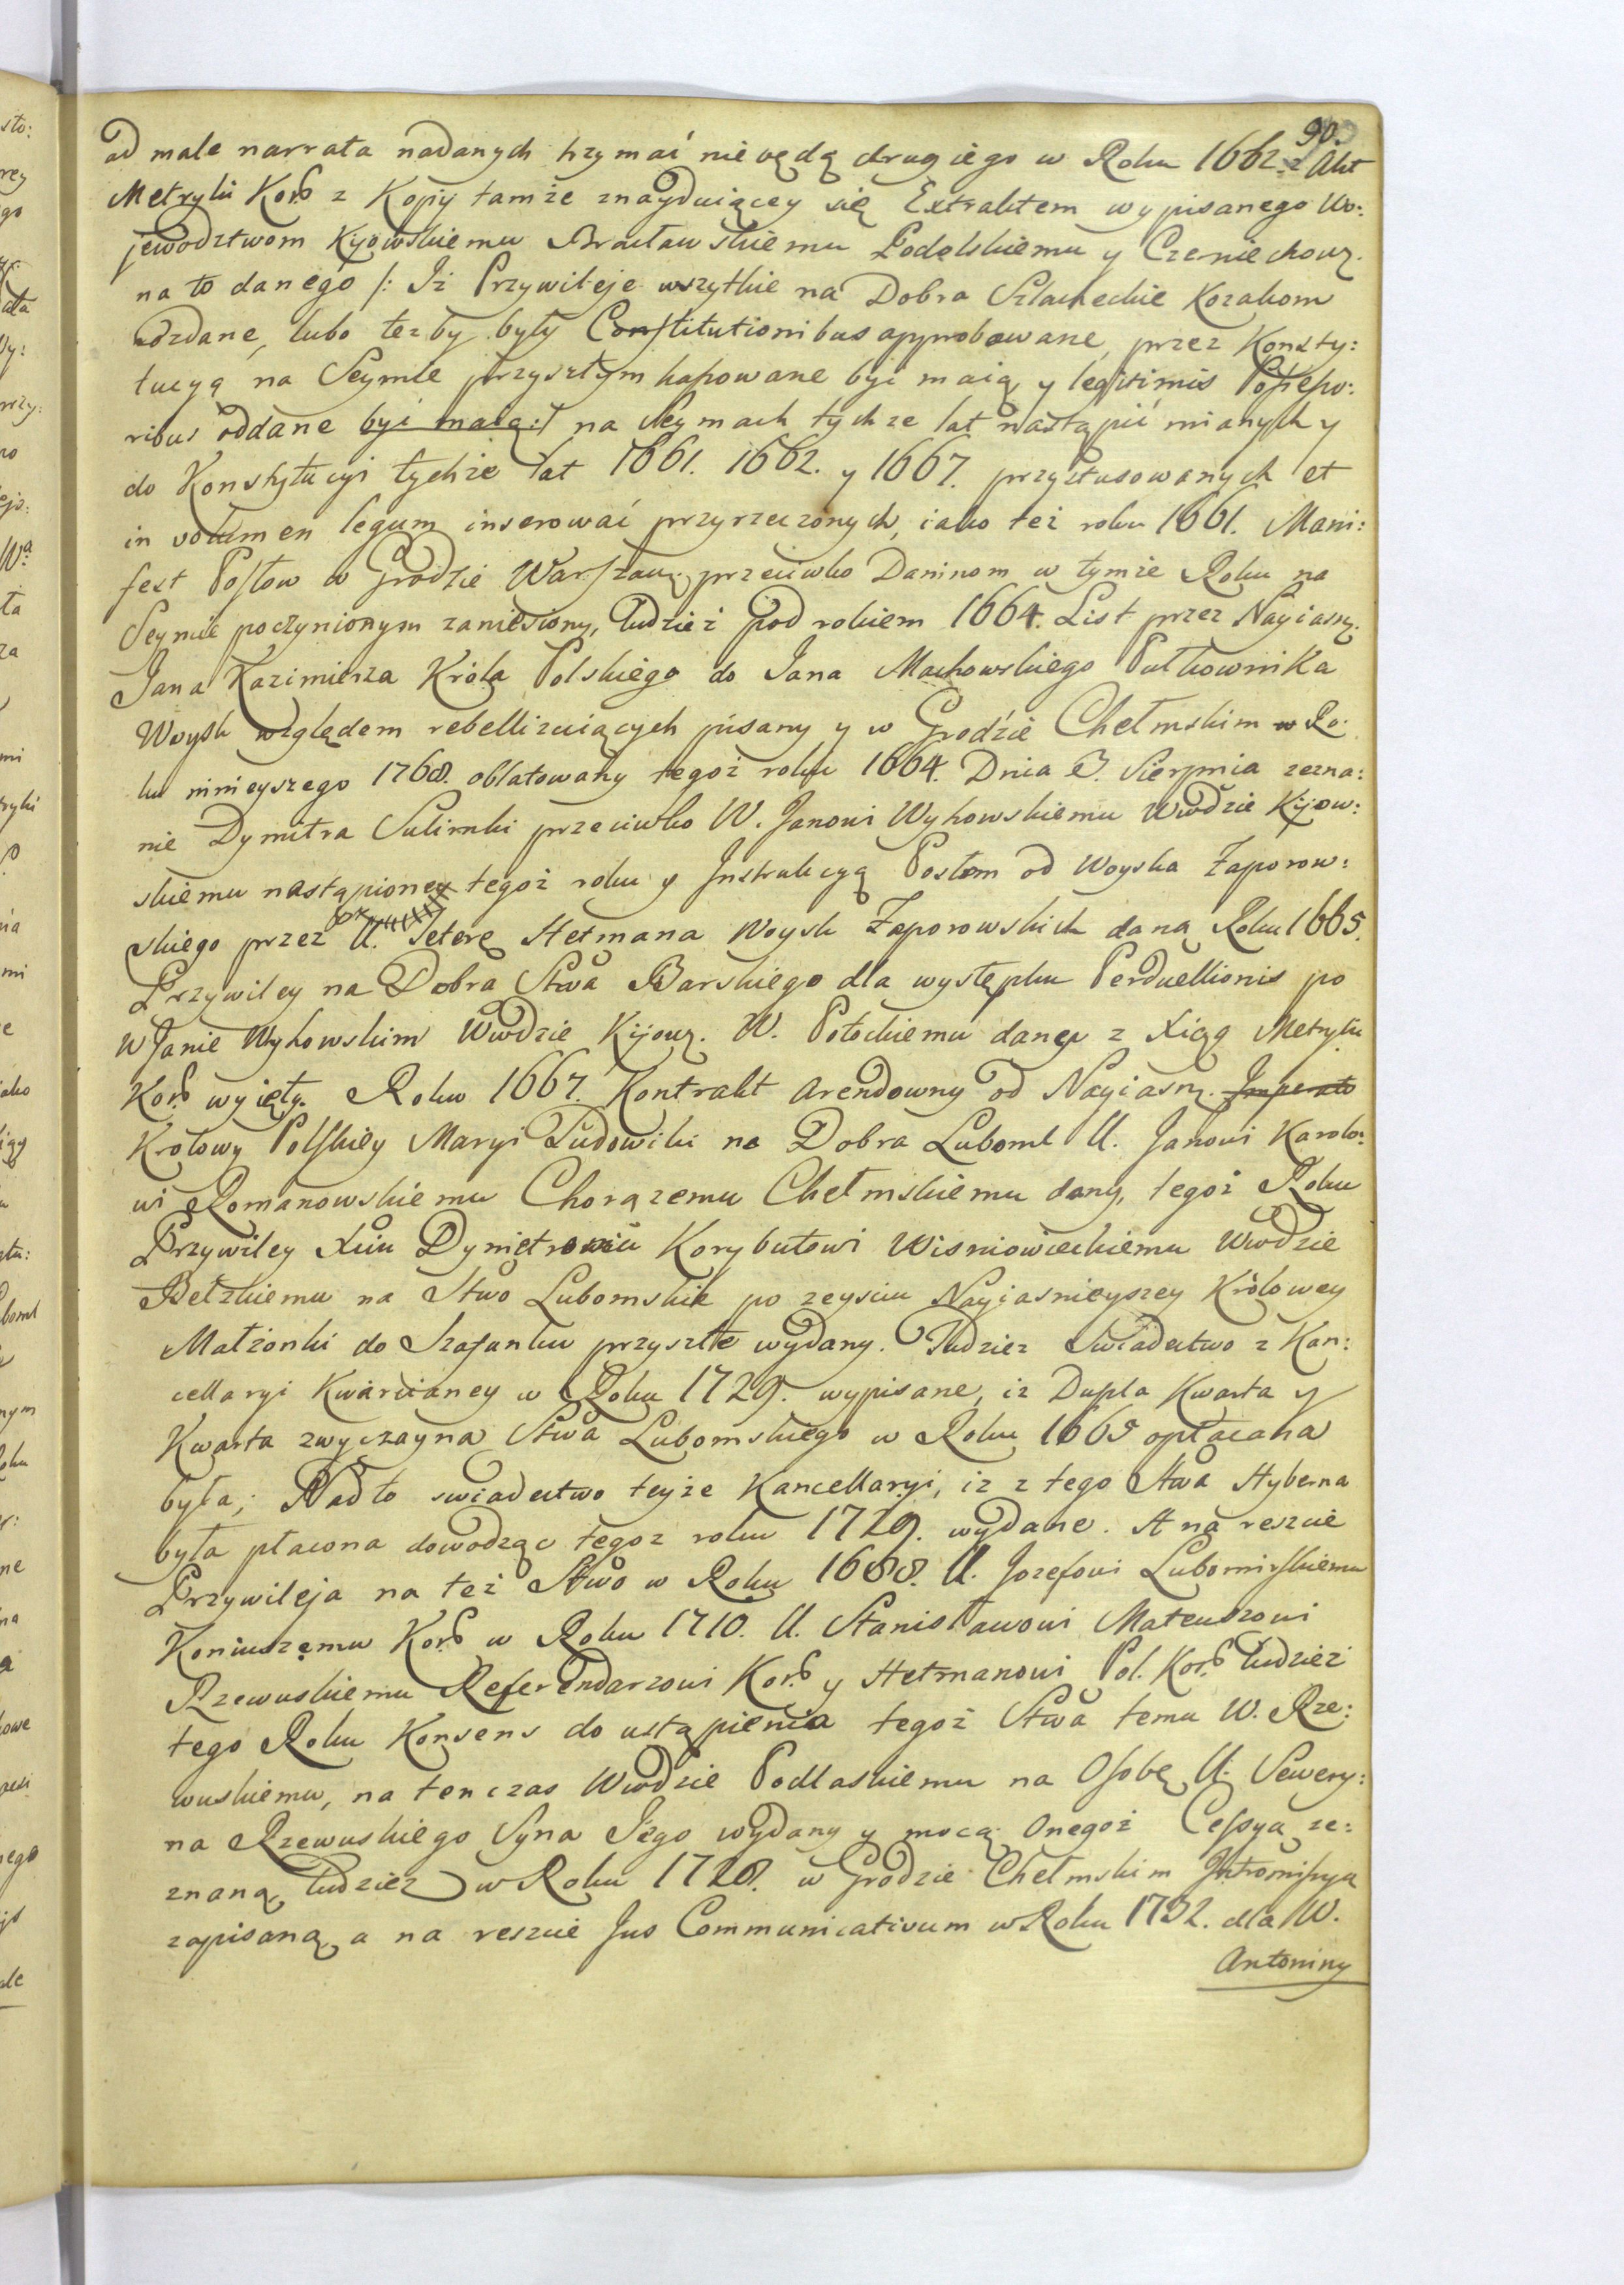 90.
ad male narrata nadanych trzymać nie będą drugiego w Roku 1662. z Akt
Metryki Kor: z Kopij tamże znayduiącey się Extraktem wypisanego Wo:
jewodztwom Kijowskiemu Bracławskiemu Podolskiemu y Czerniechow:
na to danego /: Iż Przywileje wszytkie na Dobra Szlacheckie Kozakom
dane, lubo też by były Constitutionibus approbowane, przez Konsty:
tucyą na Seymie przyszłym kassowane być maią y legitimis Possesso:
ribus oddane być maią :/ na Seymach tychże lat nastąpić mianych y
do Konstytucyi tychże lat 1661. 1662. y 1667. przystusowanych et
in volumen legum inserować przyrzeczonych, iako też roku 1661. Mani:
fest Posłow w Grodzie Warszaw: przeciwko Daninom w tymże Roku na
Seymie poczynionym zaniesiony, Tudzież pod rokiem 1664. List przez Nayiasn:
Jana Kazimierza Króla Polskiego do Jana Machowskiego Pułkownika
Woysk względem rebellizuiących pisany y w Grodzie Chełmskim w Ro:
ku ninieyszego 1768. oblatowany tegoż roku 1664. Dnia 8. Sierpnia zezna:
nie Dymitra Sulimki przeciwko W. Janowi Wyhowskiemu Wwodzie Kijow:
skiemu nastąpioney tegoż roku y Instrukcyą Posłom od Woyska Zaporow:
skiego przez U. Teterę Hetmana Woysk Zaporowskich daną Roku 1665.
Przywiley na Dobra Stwa Barskiego dla występku Perduellionis po
W Janie Wyhowskim Wwodzie Kijow: W. Potockiemu dany z Xiąg Metryki
Kor: wyięty. Roku 1667. Kontrakt Arendowny od Nayiasn: Imperato
Krolowy Polskiey Maryi Ludowiki na Dobra Luboml U. Janowi Karolo:
wi Romanowskiemu Chorązemu Chełmskiemu dany, tegoż Roku
Przywiley Xciu Dymetrowiu Korybutowi Wisniowieckiemu Wwodzie
Bełzkiemu na Stwo Lubomskie po zeysciu Nayiasnieyszey Królowey
Małżonki do Szafunku przyszłe wydany. Tudziez Swiadectwo z Kan:
cellaryi Kwarcianey w Roku 1729. wypisane, iz Dupla Kwarta y
Kwarta zwyczayna Stwa Lubomskiego w Roku 1665 opłacana
była; Nadto swiadectwo teyże Kancellaryi, iz z tego Stwa Hyberna
była płacona dowodząc tegoz roku 1729. wydane. A na reszcie
Przywileja na też Stwo w Roku 1688. U. Jozefowi Lubomirskiemu
Koniuszemu Kor: w Roku 1710. U. Stanisławowi Mateuszowi
Rzewuskiemu Referendarzowi Kor: y Hetmanowi Pol. Kor: tudzież
tego Roku Konsens do ustąpienia tegoż Stwa temu W. Rze:
wuskiemu, na ten czas Wwodzie Podlaskiemu na Osobę U. Sewery:
na Rzewuskiego Syna Jego wydany y mocą Onegoż Cessya ze:
znaną, tudziez w Roku 1728. w Grodzie Chełmskim Intromissya
zapisaną, a na reszcie Jus Communicativum w Roku 1732. dla W.
Antoniny